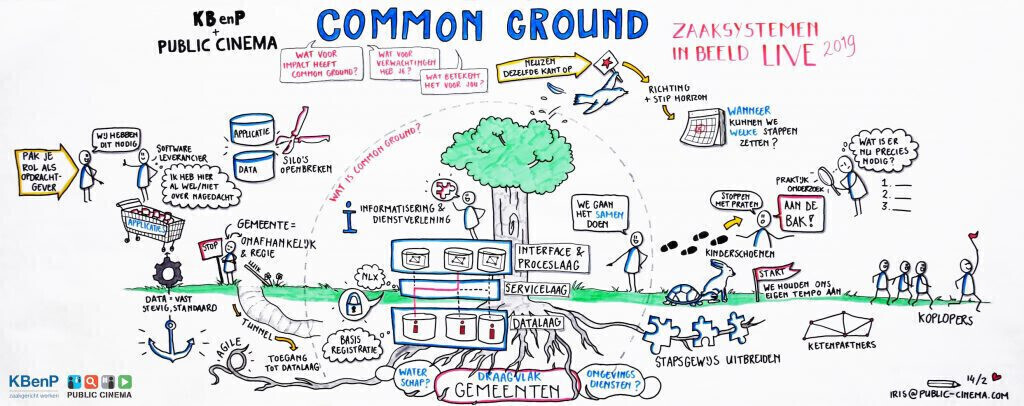 KBenP
+
PUBLIC CINEMA
COMMON GROUND
ZAAKSYSTEMEN
IN BEELD LIVE 2019
WAT VOOR
IMPACT HEEFT
COMMON GROUND?
WAT VOOR
VERWACHTINGEN
HEB JE?
WAT BETEKENT
HET VOOR JOU?
NEUZEN
DEZELFDE KANT OP
RICHTING
+ STIP HORIZON
WANNEER
KUNNEN WE
WELKE STAPPEN
ZETTEN?
WAT IS ER
NU PRECIES
NODIG?
PRAKTIJK
ONDERZOEK
1.
2.
3.
PAK JE
ROL ALS
OPDRACHT-
GEVER
WIJ HEBBEN
DIT NODIG
SOFTWARE
LEVERANCIER
IK HEB HIER
AL WEL/NIET
OVER NAGEDACHT
APPLICATIE
DATA
SILO'S
OPENBREKEN
WAT IS COMMON GROUND?
APPLICATIE
STOP
GEMEENTE =
ONAFHANKELIJK
& REGIE
DATA = VAST
STEVIG, STANDAARD
TUNNEL
AGILE
TOEGANG
TOT DATALAAG
i
INFORMATISERING &
DIENSTVERLENING
INTERFACE &
PROCESLAAG
NLX
SERVICELAAG
DATALAAG
BASIS
REGISTRATIE
WE GAAN
HET SAMEN
DOEN
STOPPEN
MET PRATEN
AAN DE
BAK!
KINDERSCHOENEN
START
WE HOUDEN ONS
EIGEN TEMPO AAN
KOPLOPERS
STAPSGEWIJS UITBREIDEN
KETENPARTNERS
WATER
SCHAP?
DRAAGVLAK
GEMEENTEN
OMGEVINGS
DIENSTEN?
KBenP
zaakgericht werken
PUBLIC CINEMA
14/2
IRIS@PUBLIC-CINEMA.COM